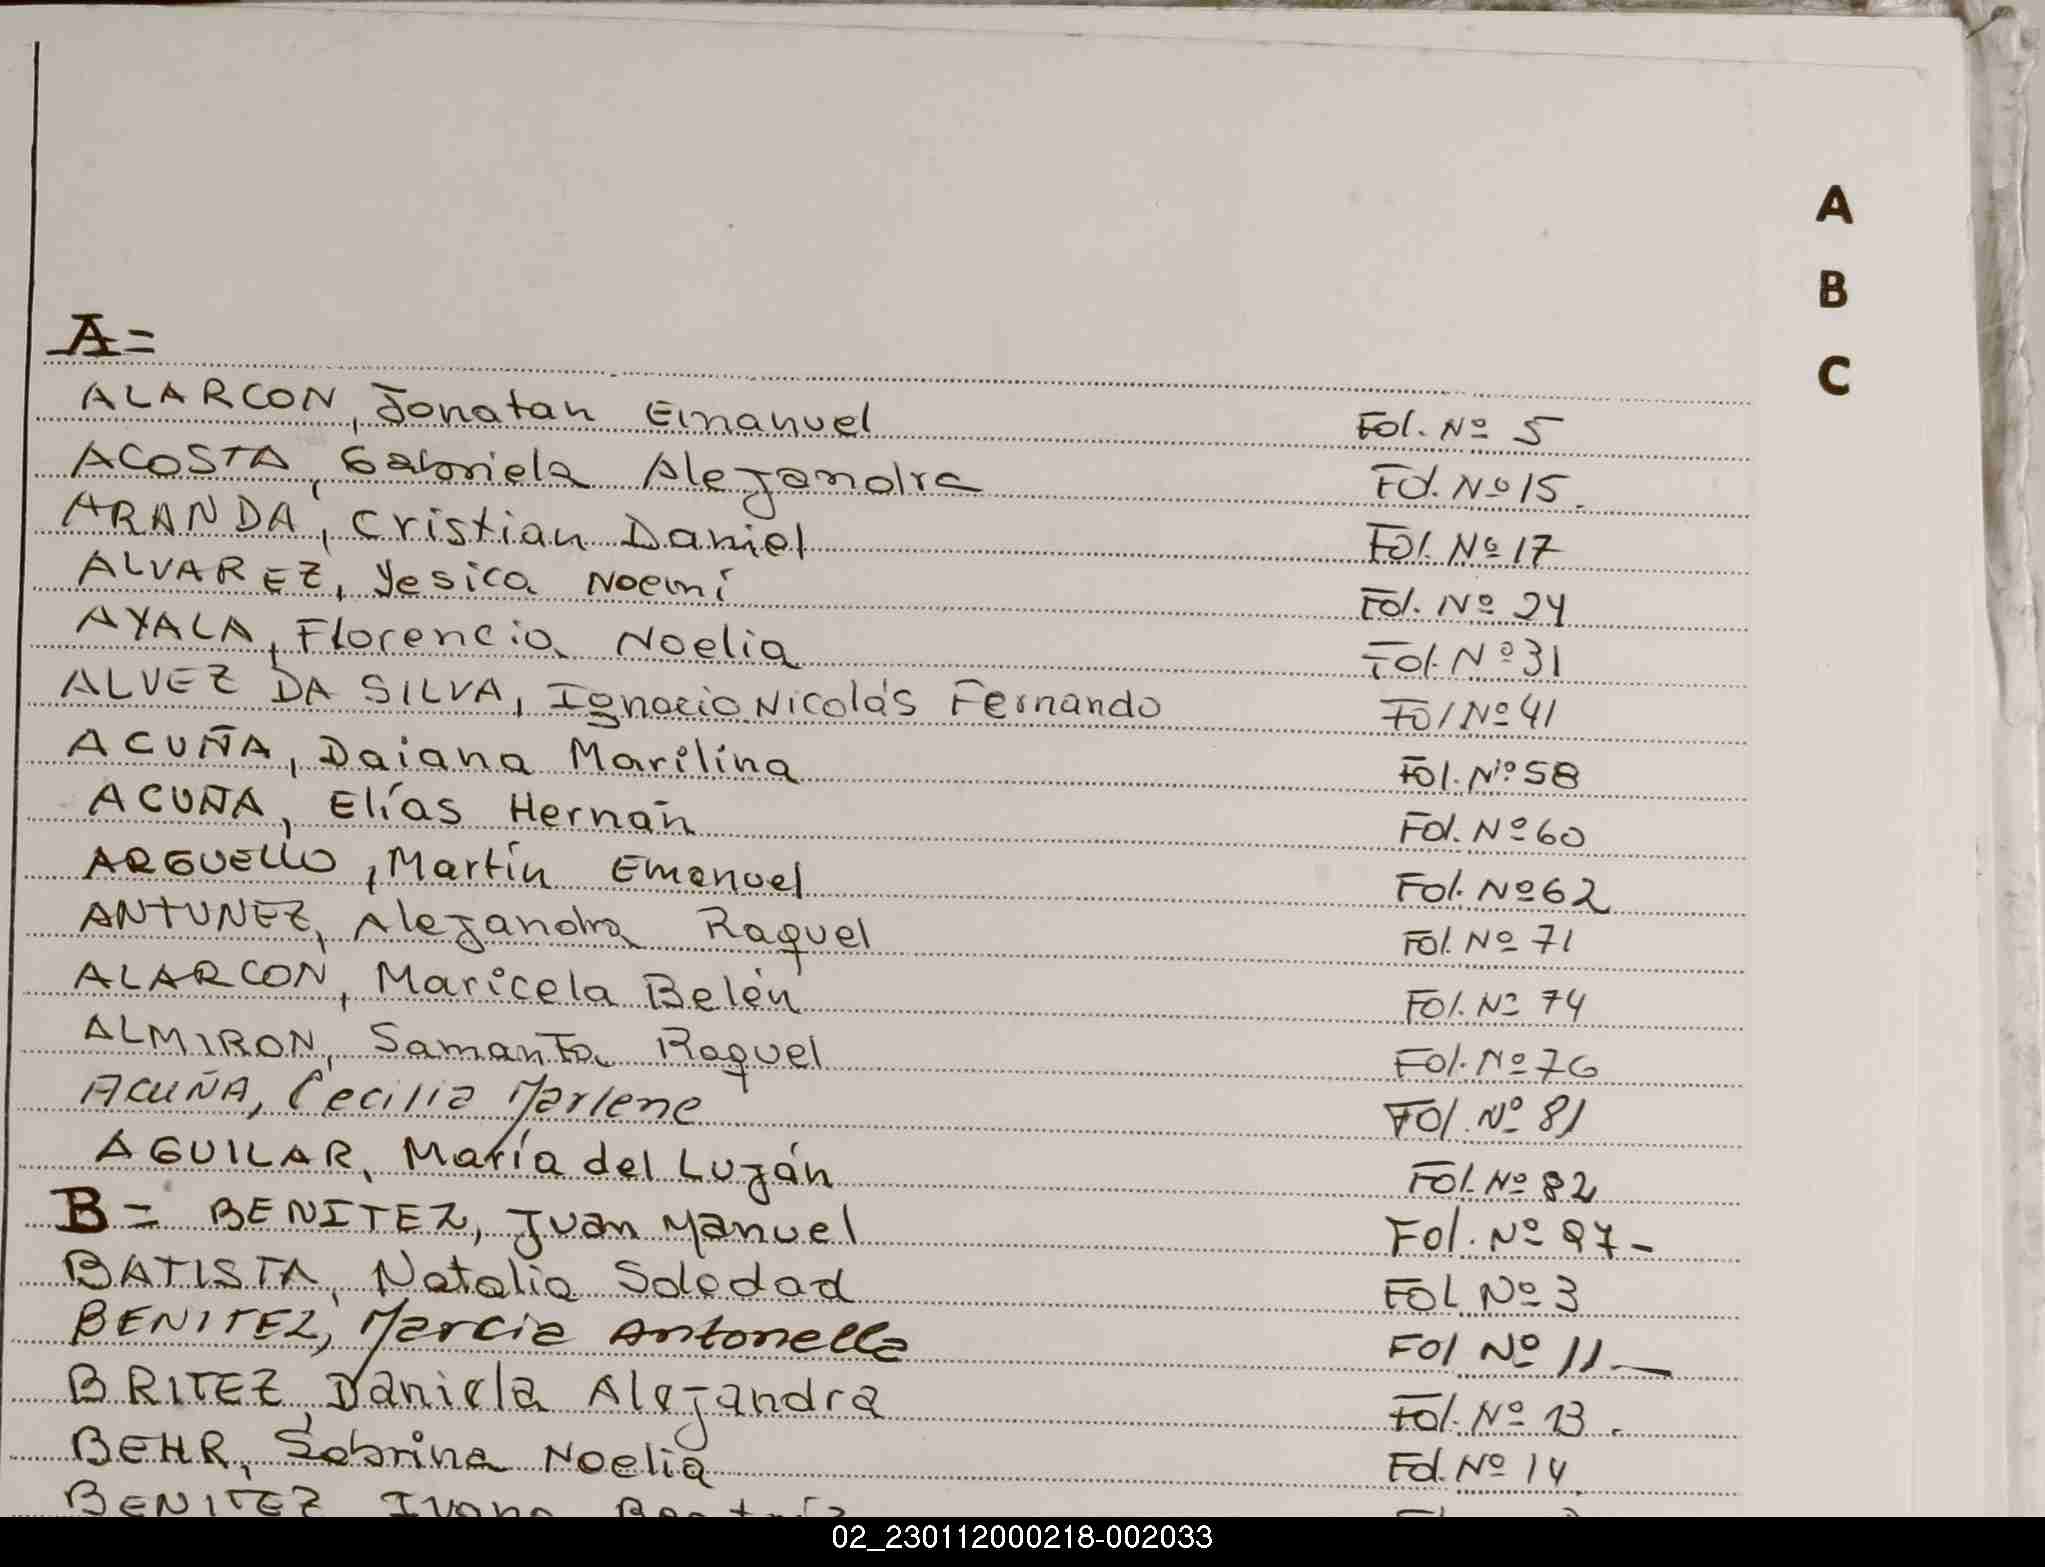 A
B
C
A=
ALARCON, Jonatan Emanuel Fol. Nº 5
ACOSTA, Gabriela Alejandra Fol. Nº 15.
ARANDA, Cristian Daniel Fol. Nº 17
ALVAREZ, Yesica Noemí Fol. Nº 24
AYALA, Florencia Noelia Fol. Nº 31
ALVEZ DA SILVA, Ignacio Nicolás Fernando Fol Nº 41
ACUÑA, Daiana Marilina Fol. Nº 58
ACUÑA, Elías Hernán Fol. Nº 60
ARGUELLO, Martín Emanuel Fol. Nº 62
ANTUNEZ, Alejandra Raquel Fol. Nº 71
ALARCON, Maricela Belén Fol. Nº 74
ALMIRON, Samanta Raquel Fol. Nº 76
ACUÑA, Cecilia Marlene Fol. Nº 81
AGUILAR, María del Luján Fol. Nº 82
B= BENITEZ, Juan Manuel Fol. Nº 97-
BATISTA, Natalia Soledad Fol Nº 3
BENITEZ, Marcia Antonella Fol Nº 11—
BRITEZ, Daniela Alejandra Fol. Nº 13.
BEHR, Sabrina Noelia Fol. Nº 14.
BENITEZ
02_230112000218-002033